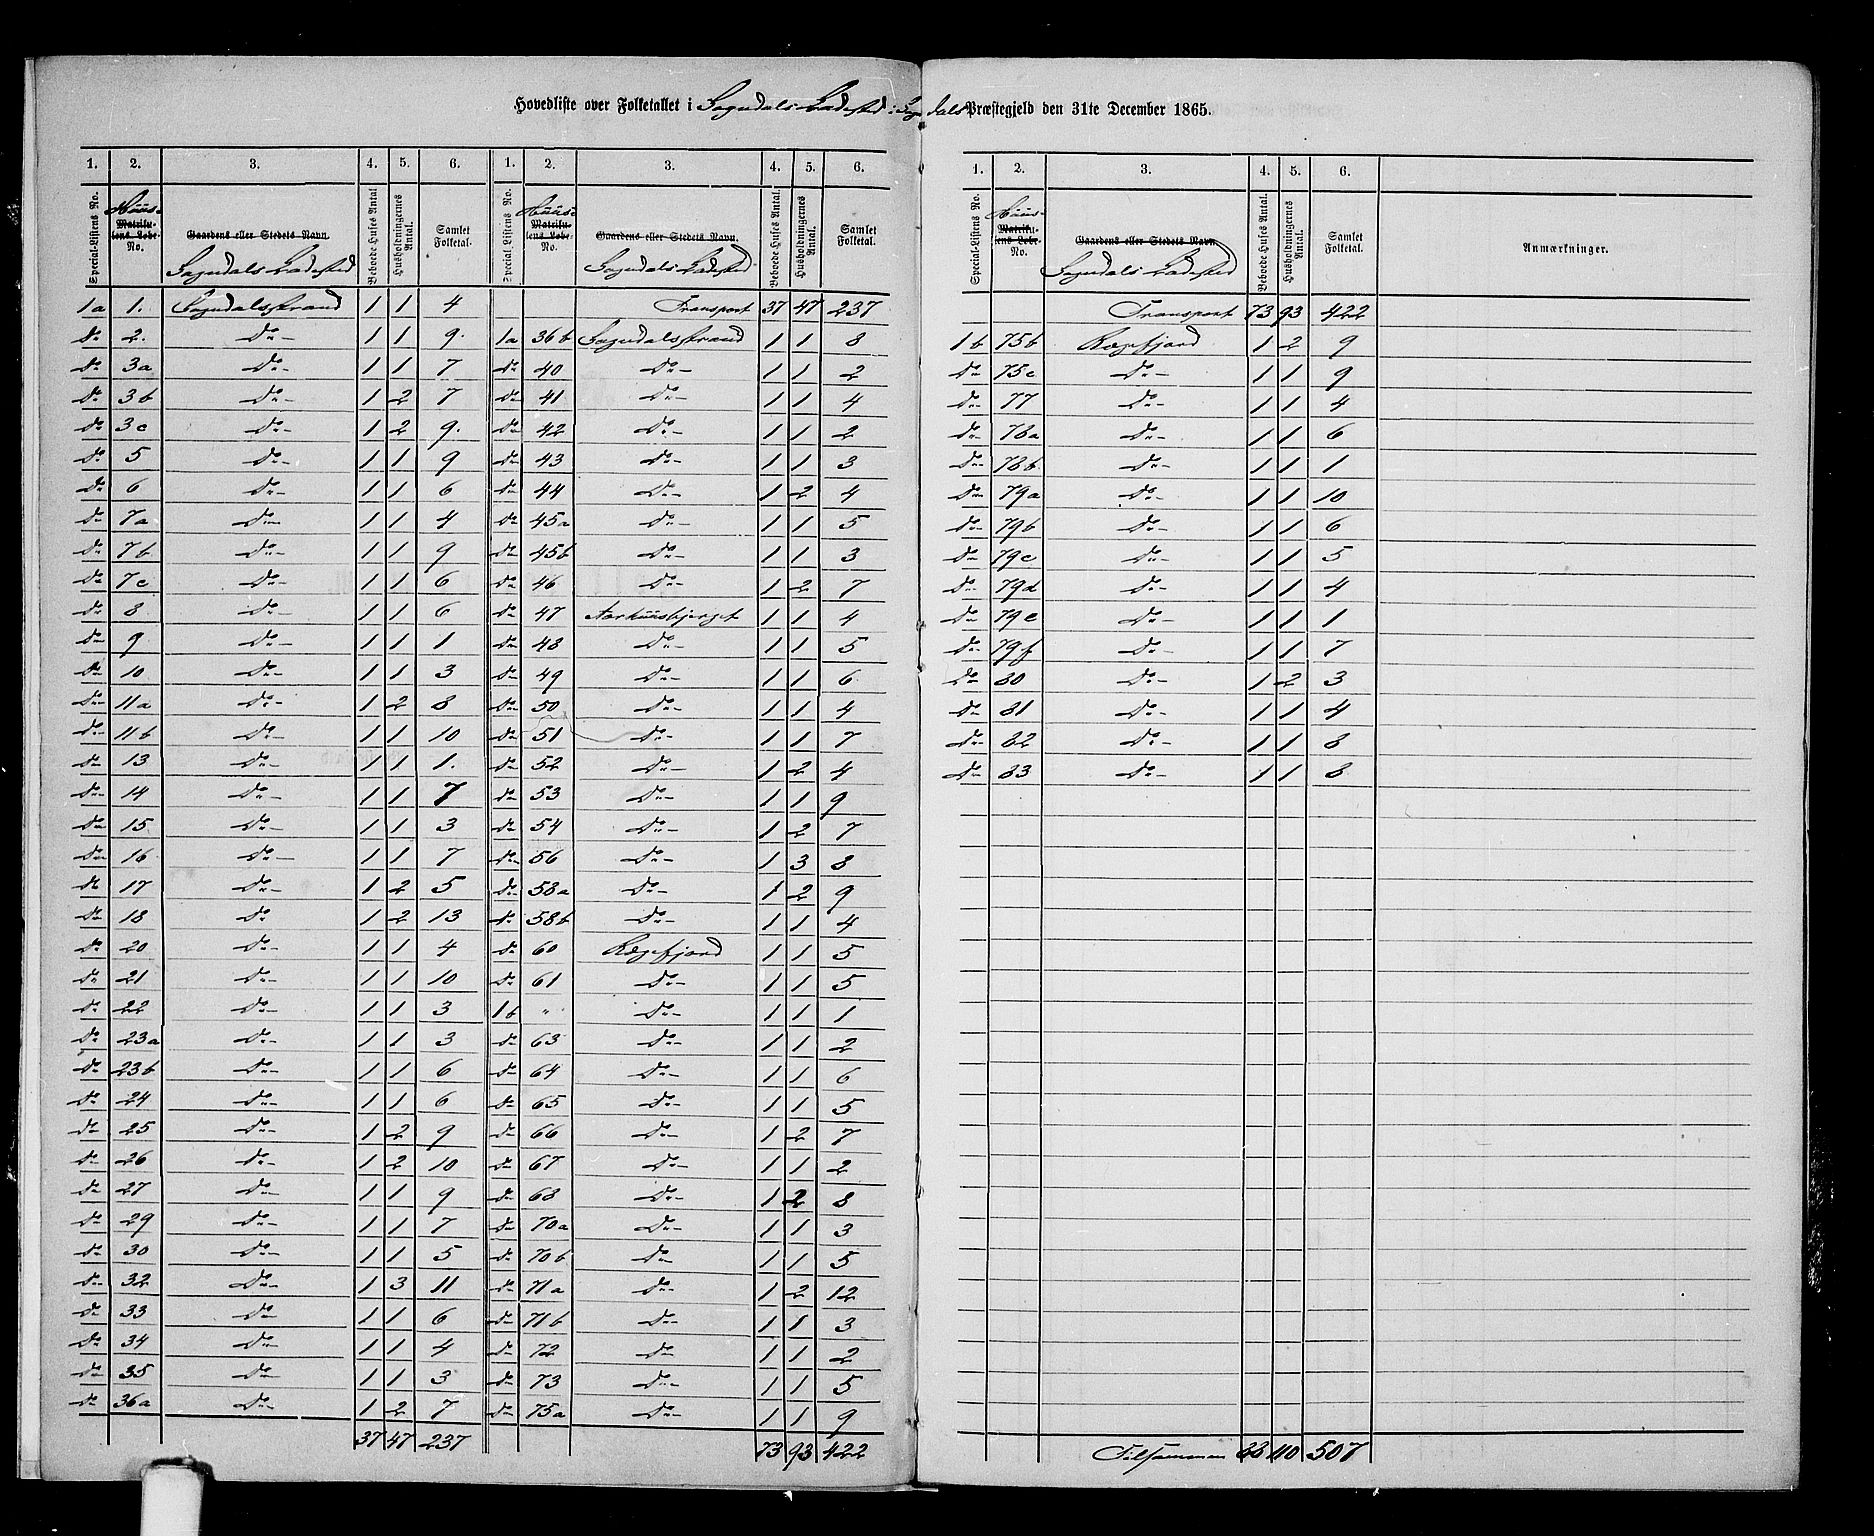 Hovedliste over Folketallet i Sogndals Ladested i Sogndals Præstegjeld den 31te December 1865.
1. 2. 3. 4. 5. 6. 1. 2. 3. 4. 5. 6.
Special-Listens No. Huus- Matrikulens Løbe-No. Gaardens eller Stedets Navn. Sogndals Ladested Beboede Huses Antal. Husholdningernes Antal. Samlet Folketal. Special-Listens No. Huus- Matrikulens Løbe-No. Gaardens eller Stedets Navn. Sogndals Ladested Beboede Huses Antal. Husholdningernes Antal. Samlet Folketal.
1a 1. Sogndalsstrand 1 1 4 Transport 37 47 237
do 2. do 1 1 9. 1a 36b Sogndalsstrand 1 1 8
do 3a do 1 1 7 do 40 do 1 1 2
do 3b do 1 2 7 do 41 do 1 1 4
do 3c do 1 2 9. do 42 do 1 1 2
do 5 do 1 1 9 do 43 do 1 1 3
do 6 do 1 1 6 do 44 do 1 2 4
do 7a do 1 1 4 do 45a do 1 1 5
do 7b do 1 1 9 do 45b do 1 1 3
do 7c do 1 1 6 do 46 do 1 2 7
do 8 do 1 1 6 do 47 Aarhuusbjerget 1 1 4
do 9 do 1 1 1 do 48 do 1 1 5
do 10 do 1 1 3 do 49 do 1 1 6
do 11a do 1 2 8 do 50 do 1 1 4
do 11b do 1 1 10 do 51 do 1 1 7
do 13 do 1 1 1. do 52 do 1 2 4
do 14 do 1 1 7 do 53 do 1 1 9
do 15 do 1 1 3 do 54 do 1 2 7
do 16 do 1 1 7 do 56 do 1 3 8
do 17 do 1 2 5 do 58a do 1 2 9
do 18 do 1 2 13 do 58b do 1 1 4
do 20 do 1 1 4 do 60 Rægefjord 1 1 5
do 21 do 1 1 10 do 61 do 1 1 5
do 22 do 1 1 3 1b " do 1 1 1
do 23a do 1 1 3 do 63 do 1 1 2
do 23b do 1 1 6 do 64 do 1 1 6
do 24 do 1 1 6 do 65 do 1 1 5
do 25 do 1 2 9 do 66 do 1 2 7
do 26 do 1 2 10 do 67 do 1 1 2
do 27 do 1 1 9 do 68 do 1 2 8
do 29 do 1 1 7 do 70a do 1 1 3
do 30 do 1 1 5 do 70b do 1 1 5
do 32 do 1 3 11 do 71a do 1 2 12
do 33 do 1 1 6 do 71b do 1 1 3
do 34 do 1 1 4 do 72 do 1 1 2
do 35 do 1 1 3 do 73 do 1 1 5
do 36a do 1 2 7 do 75a do 1 1 9
37 47 237 73 93 422
1. 2. 3. 4. 5. 6.
Special-Listens No. Huus- Matrikulens Løbe-No. Gaardens eller Stedets Navn. Sogndals Ladested Beboede Huses Antal. Husholdningernes Antal. Samlet Folketal. Anmærkninger.
Transport 73 93 422
1b 75b Rægefjord 1 2 9
do 75c do 1 1 9
do 77 do 1 1 4
do 78a do 1 1 6
do 78b do 1 1 1
do 79a do 1 1 10
do 79b do 1 1 6
do 79c do 1 1 5
do 79d do 1 1 4
do 79e do 1 1 1
do 79f do 1 1 7
do 80 do 1 2 3
do 81 do 1 1 4
do 82 do 1 1 8
do 83 do 1 1 8
Tilsammen 88 110 507